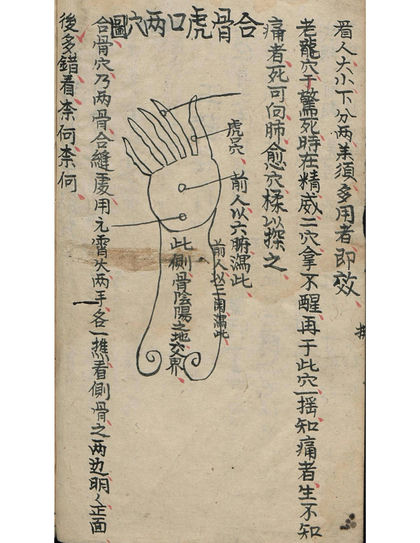 看人大小下分两耒須多用者即效
老龍穴于驚死時在精威二穴拿不醒再于此穴一搯知痛者生不知
痛者死可向肺愈穴揉以探之
合骨虎口两穴圖
虎
前人以六腑潟此
前人以三関潟此
此側骨陰陽之地交界
合骨穴乃两骨合縫處用元霄火两手各一燋看側骨之两边明々正面
後多錯看柰何柰何